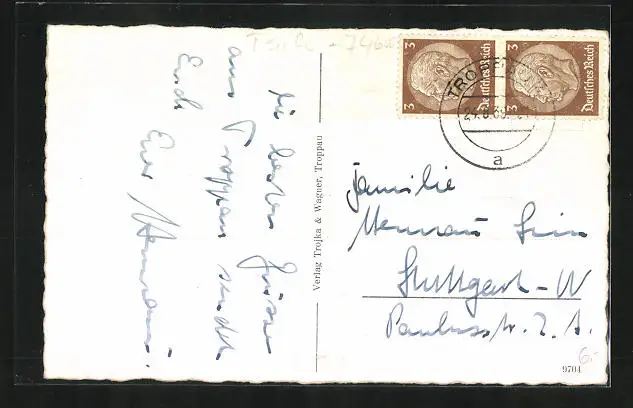 Die besten Grüsse
aus Troppau sendet
Euch
Euer Hermann.
Verlag Trojka & Wagner, Troppau
3 Deutsches Reich
3 Deutsches Reich
TROPPAU
a
Familie
Hermann
Stuttgart-W
Paulusstr. 2 A.
9704
6.-